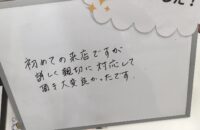 た！
初めての来店ですが
詳しく親切に対応して
頂き大変良かったです。